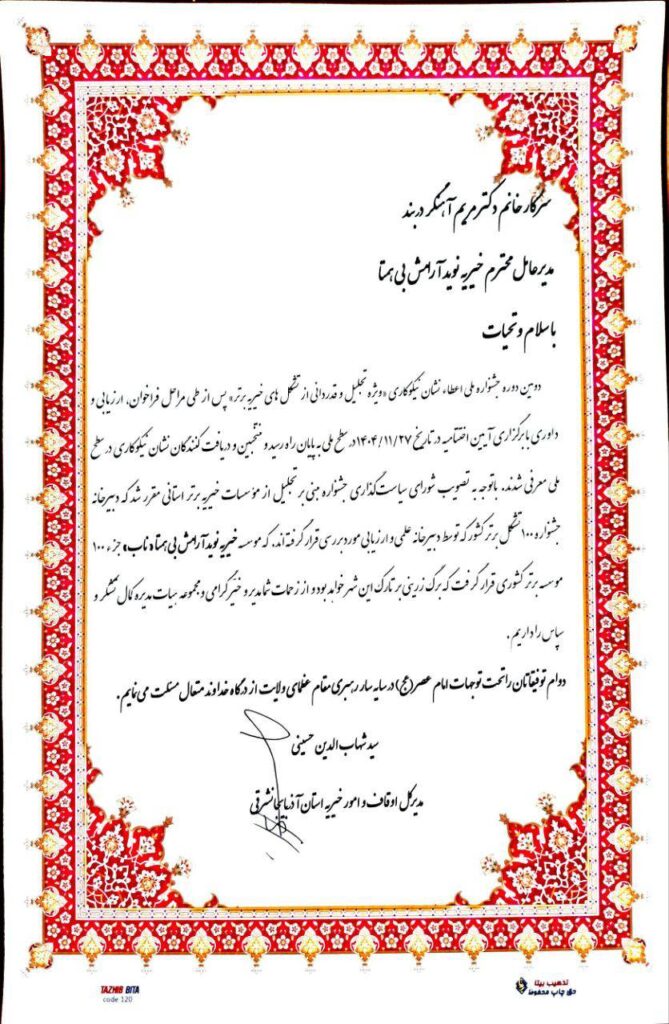 سرکار خانم دکتر مریم آهنگر دربند
مدیرعامل محترم خیریه نوید آرامش بی همتا
با سلام و تحیات
دومین دوره جشنواره ملی اعطاء نشان نیکوکاری «ویژه تجلیل و قدردانی از تشکل های خیریه برتر» پس از طی مراحل فراخوان، ارزیابی و
داوری با برگزاری آیین اختتامیه در تاریخ ۱۴۰۴/۱۱/۲۷ در سطح ملی به پایان راه رسید و منتخبین و دریافت کنندگان نشان نیکوکاری در سطح
ملی معرفی شدند. با توجه به تصویب شورای سیاست گذاری جشنواره مبنی بر تجلیل از مؤسسات خیریه برتر استانی مقرر شد که دبیرخانه
جشنواره ۱۰۰ تشکل برتر کشور که توسط دبیرخانه علمی و ارزیابی مورد بررسی قرار گرفته اند، که موسسه خیریه نوید آرامش بی همتا «ناب» جزء ۱۰۰
موسسه برتر کشوری قرار گرفت که برگ زرینی بر تارک این شهر خواهد بود و از زحمات شما مدیر و خیّر گرامی و مجموعه هیات مدیره کمال تشکر و
سپاس را داریم.
دوام توفیقاتتان را تحت توجهات امام عصر (عج) در سایه سار رهبری مقام عظمای ولایت از درگاه خداوند متعال مسئلت می نمایم.
سید شهاب الدین حسینی
مدیرکل اوقاف و امور خیریه استان آذربایجانشرقی
TAZHIB BITA
code 120
تذهیب بیتا
حق چاپ محفوظ